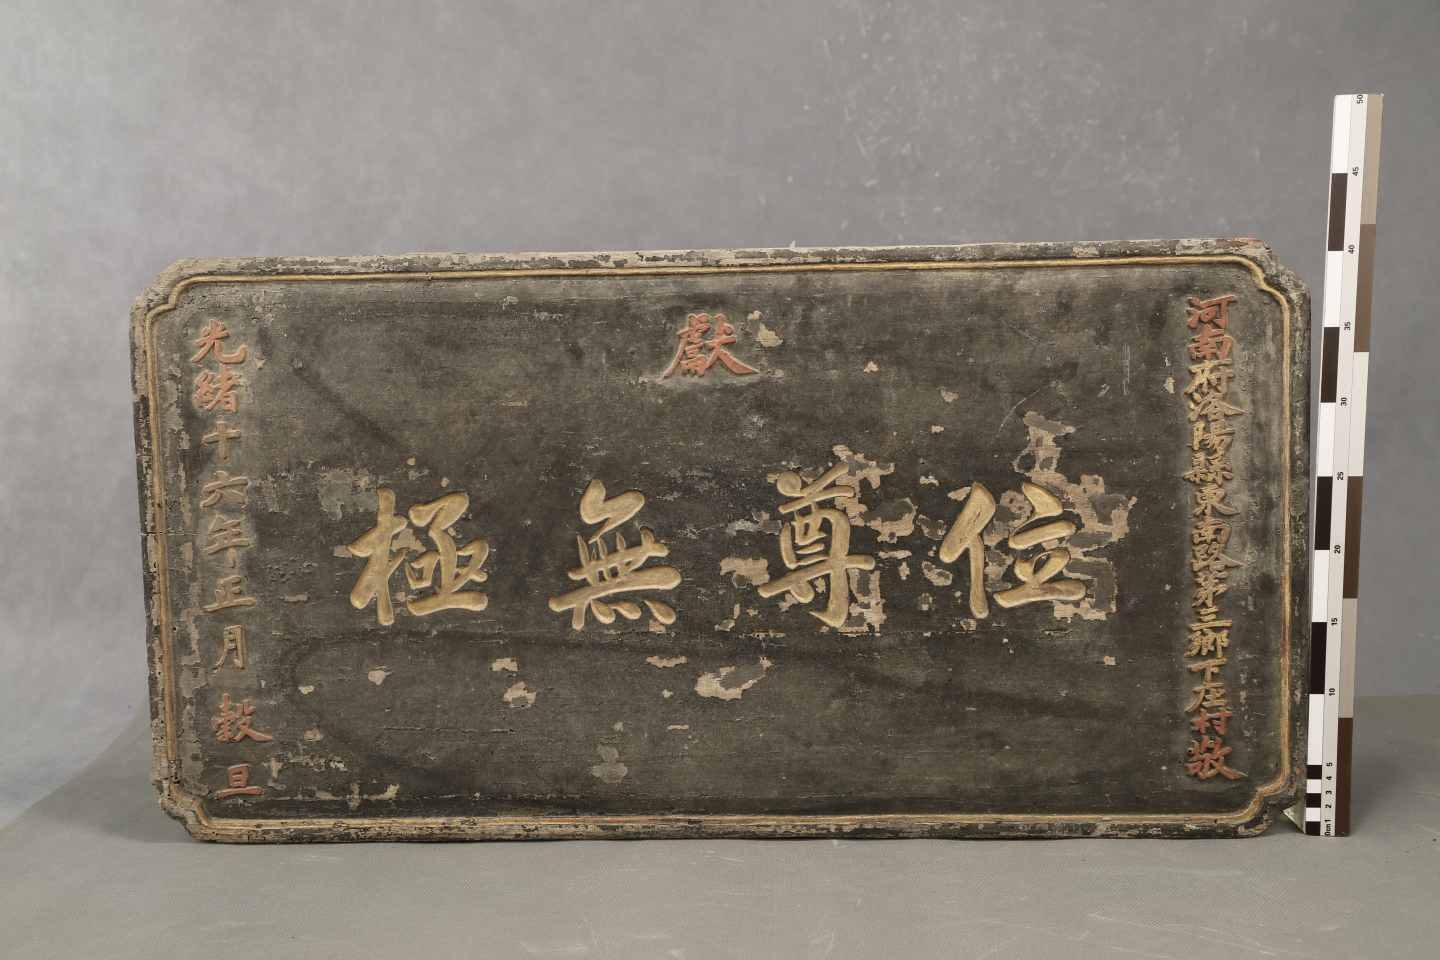 河南府洛陽縣東南路第三鄉下庄村敬
獻
位尊無極
光緒十六年正月穀旦
0m 1 2 3 4 5 10 15 20 25 30 35 40 45 50